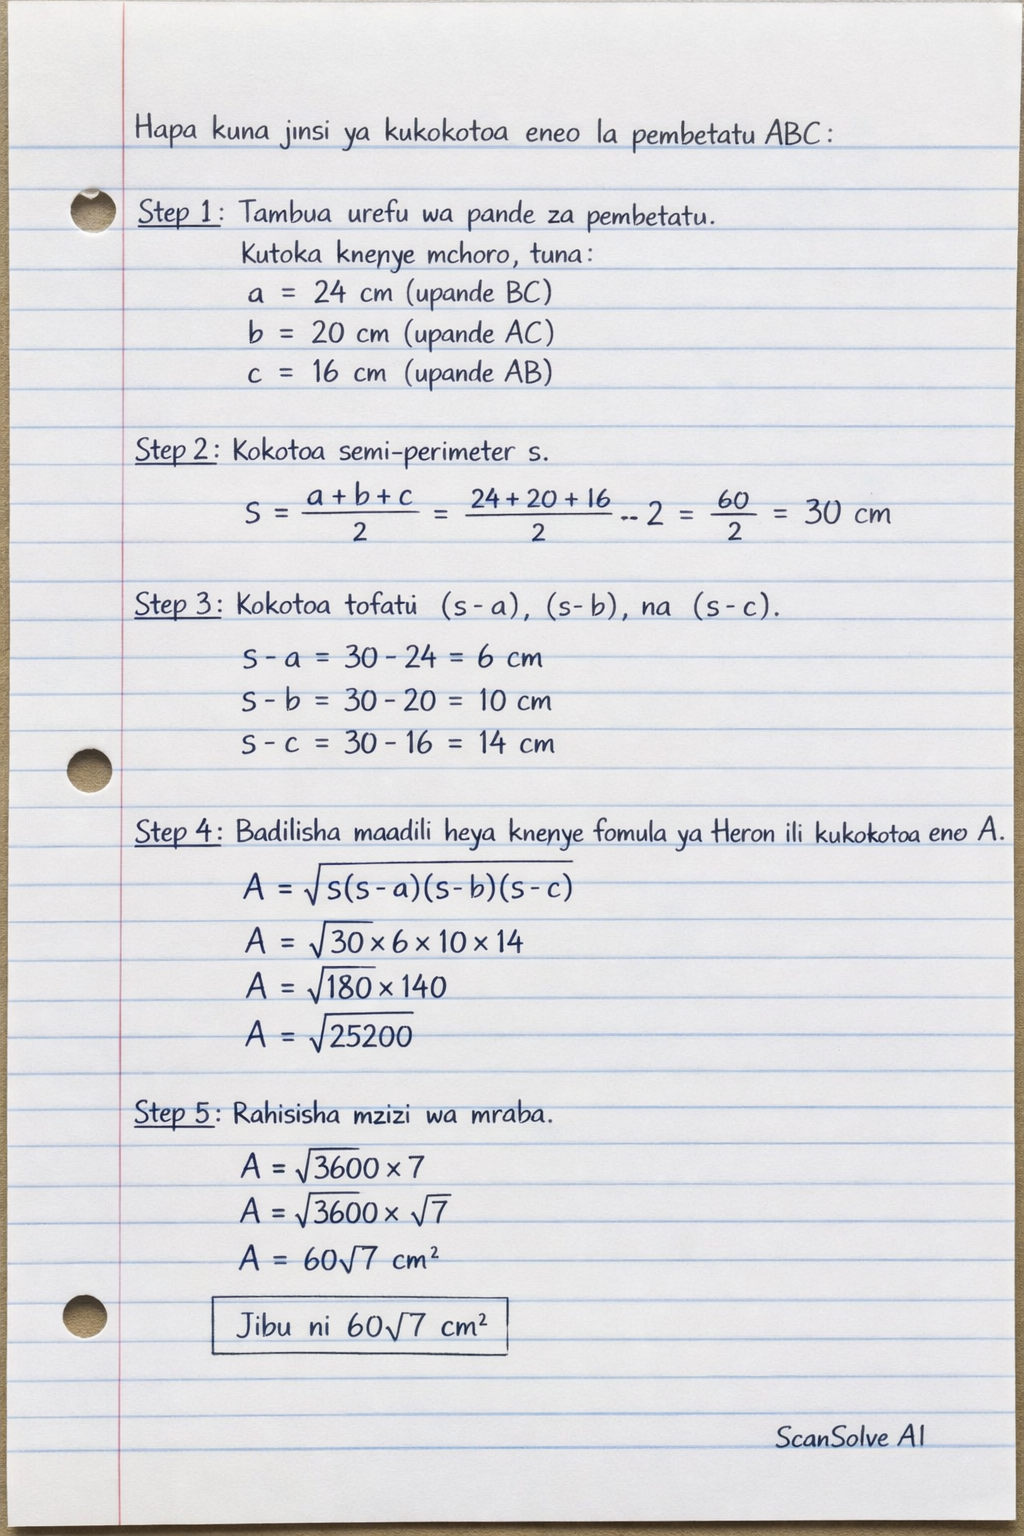 Hapa kuna jinsi ya kukokotoa eneo la pembetatu ABC:
Step 1: Tambua urefu wa pande za pembetatu.
Kutoka knenye mchoro, tuna:
a = 24 cm (upande BC)
b = 20 cm (upande AC)
c = 16 cm (upande AB)
Step 2: Kokotoa semi-perimeter s.
S = (a + b + c)/2 = (24 + 20 + 16)/2 -- 2 = 60/2 = 30 cm
Step 3: Kokotoa tofatii (s - a), (s - b), na (s - c).
s - a = 30 - 24 = 6 cm
s - b = 30 - 20 = 10 cm
s - c = 30 - 16 = 14 cm
Step 4: Badilisha maadili heya knenye fomula ya Heron ili kukokotoa eneo A.
A = √s(s - a)(s - b)(s - c)
A = √30 × 6 × 10 × 14
A = √180 × 140
A = √25200
Step 5: Rahisisha mzizi wa mraba.
A = √3600 × 7
A = √3600 × √7
A = 60√7 cm²
Jibu ni 60√7 cm²
ScanSolve AI